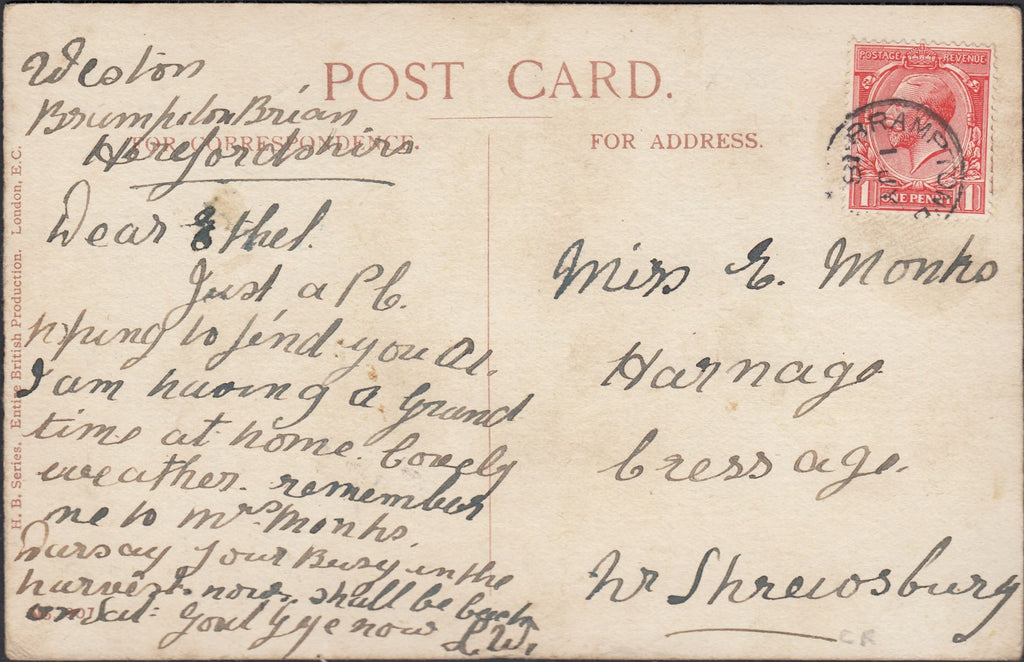 POST CARD.
FOR CORRESPONDENCE.
FOR ADDRESS.
H. B. Series. Entire British Production. London, E.C.
POSTAGE REVENUE
ONE PENNY
1 1
BRAMPTON
Weston
Brumpton Brian
Herefordshire
Dear Ethel.
Just a Pc.
hping to find you A1.
I am having a Grand
time at home. Lovely
weather. remember
me to Mrs. Monks.
Darsay your Busy in the
harvest. now. shall be back
on Sat:
now L.W.
Miss E. Monks
Harnage
Cressage.
Nr Shrewsbury
CR